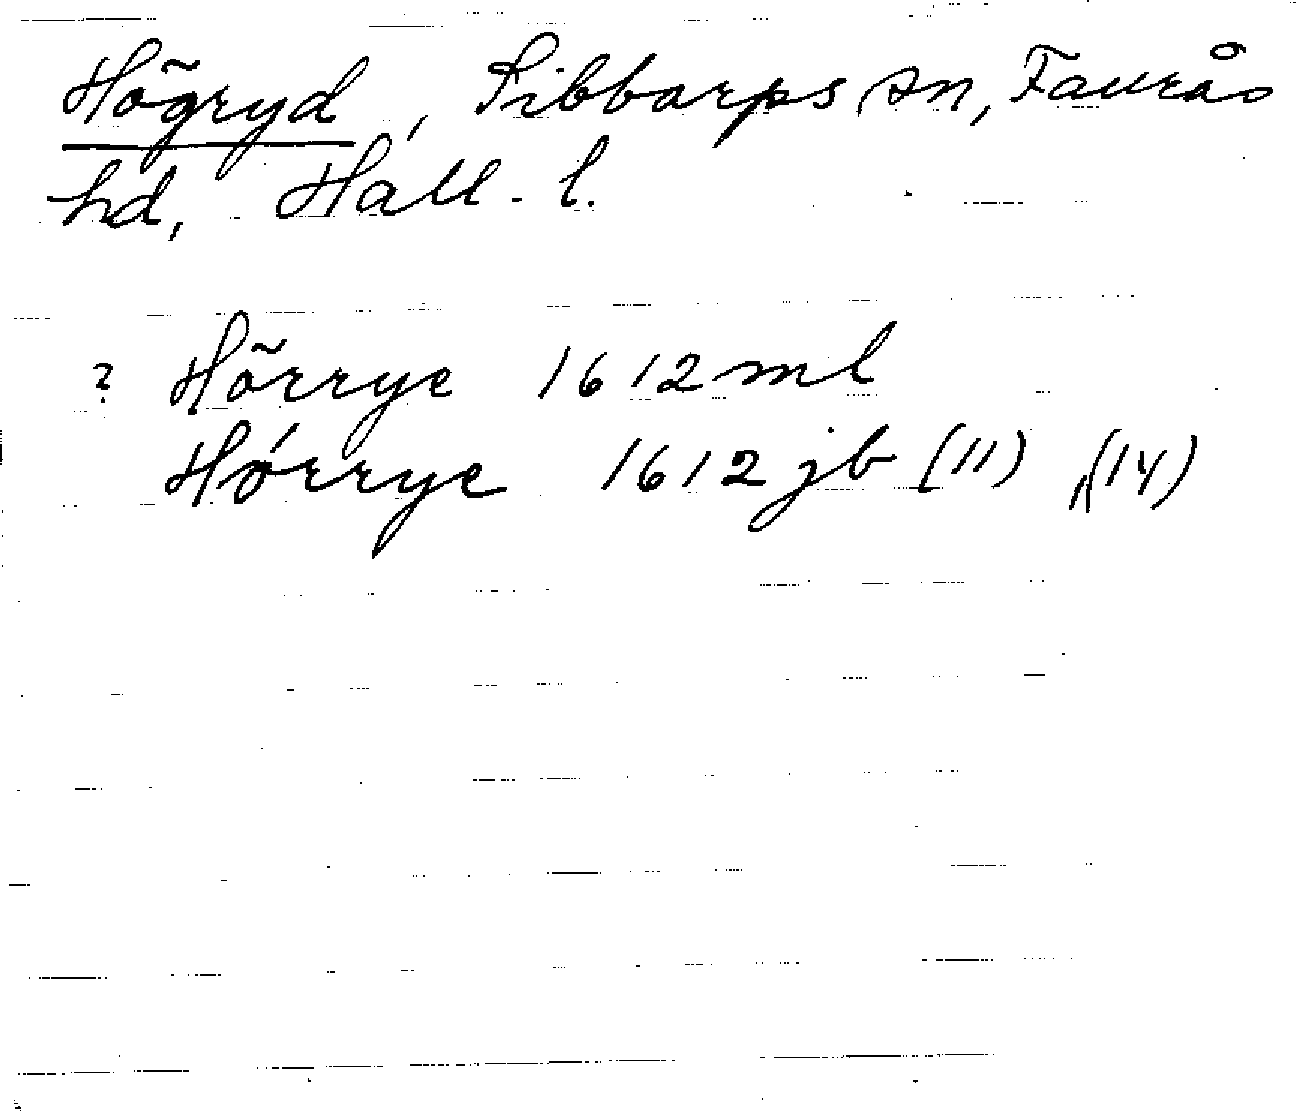 Högryd, Sibbarps sn, Faurås
hd, Hall. l.
? Hörrye 1612 ml
Hørrye 1612 jb (11) , (14)